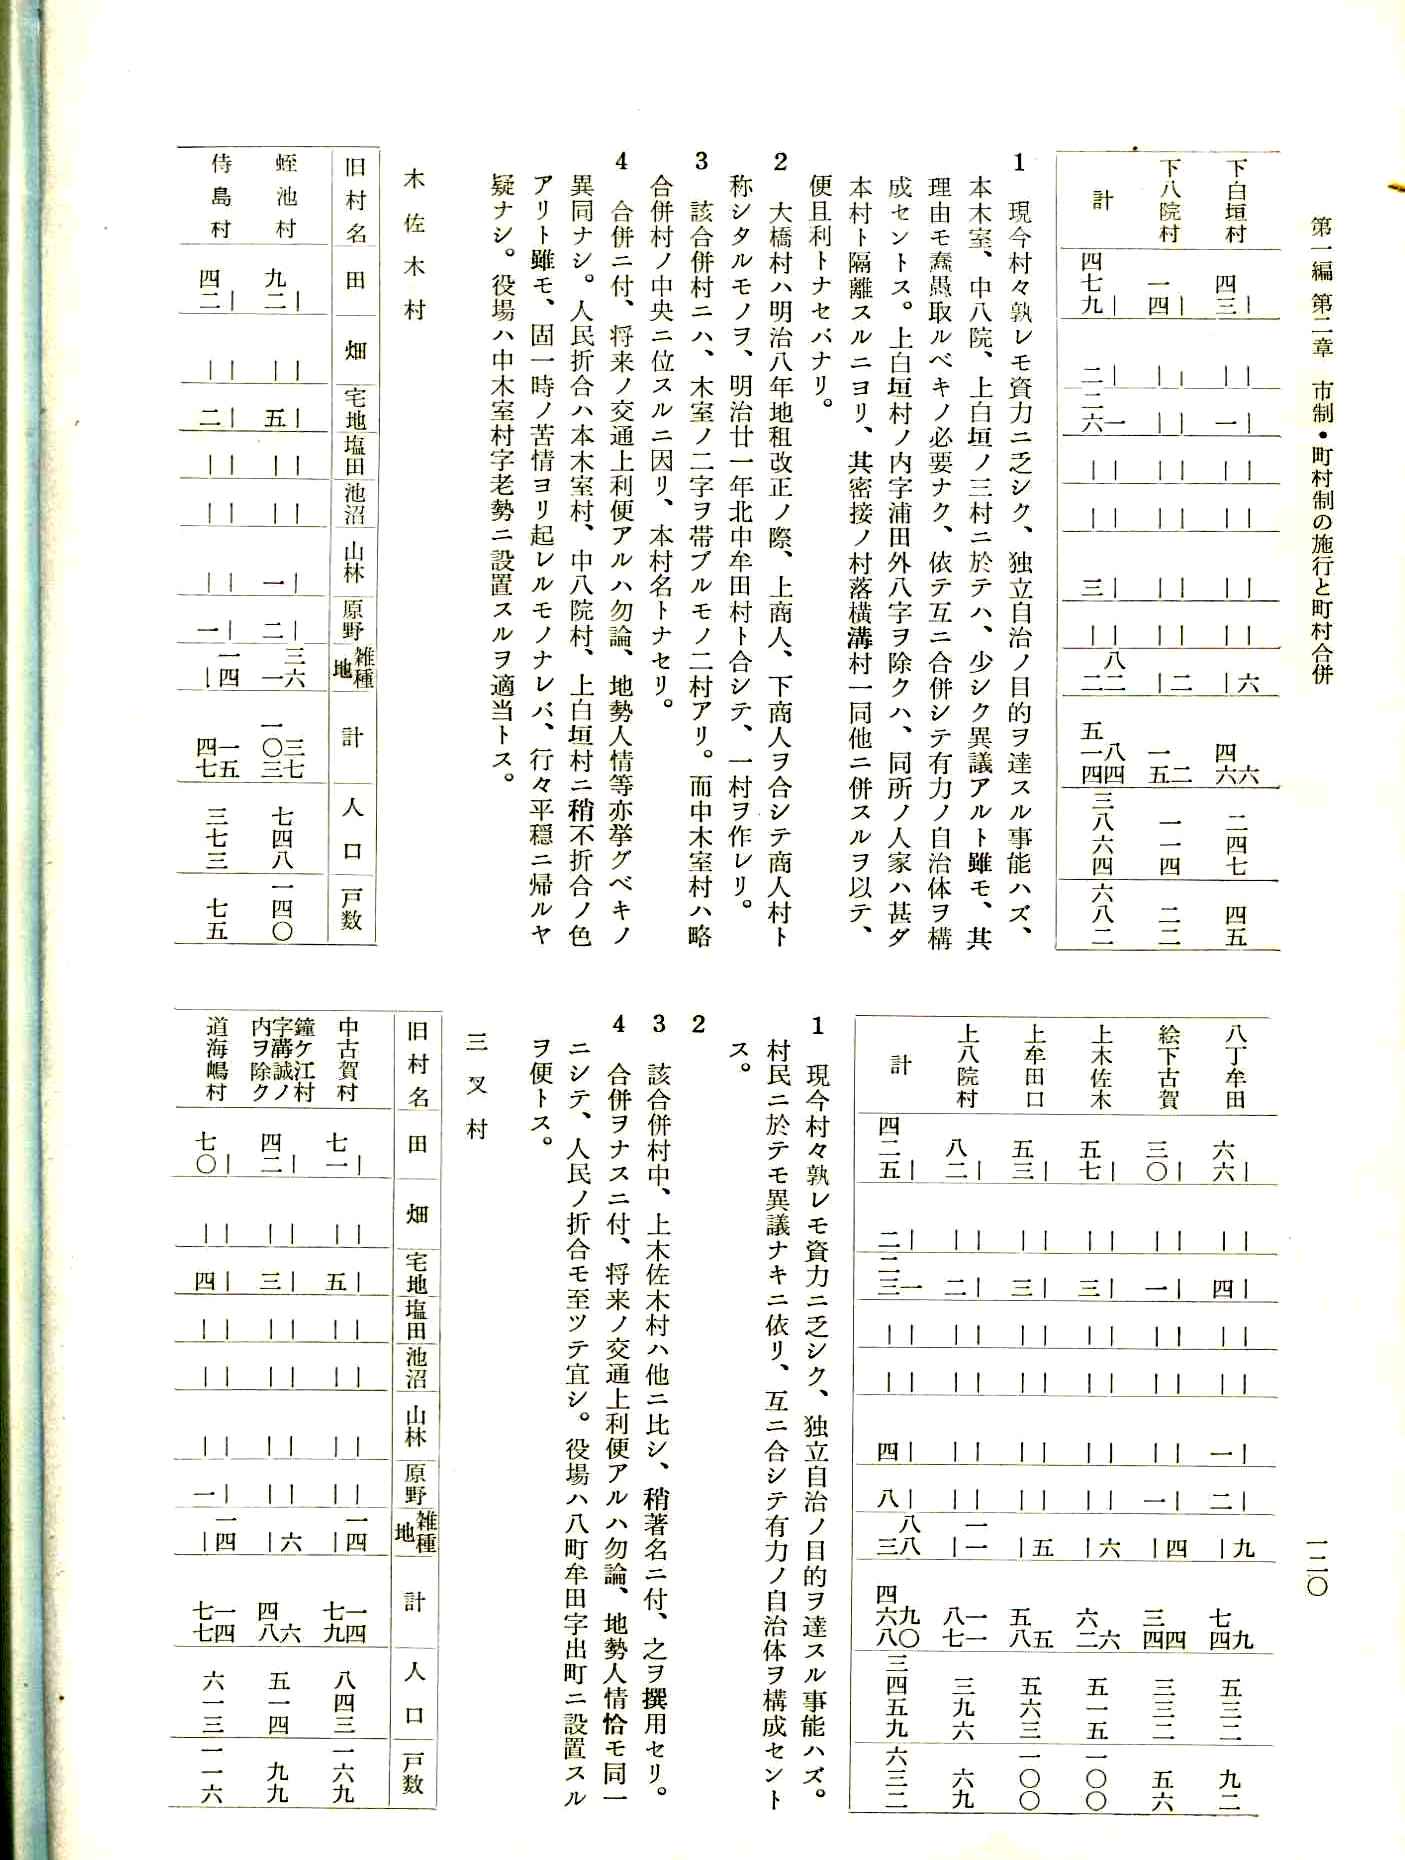 第一編 第二章 市制・町村制の施行と町村合併
一二〇
下白垣村 四三｜ ｜｜ 一｜ ｜｜ ｜｜ ｜｜ ｜｜ ｜六 四六六 二四七 四五
下八院村 一四｜ ｜｜ ｜｜ ｜｜ ｜｜ ｜｜ ｜｜ ｜二 一五二 一一四 二二
計 四七九｜ 二｜ 二六一 ｜｜ ｜｜ 三｜ ｜｜ 八二二 五一四八四 三八六四 六八二
1 現今村々孰レモ資力ニ乏シク、独立自治ノ目的ヲ達スル事能ハズ、
本木室、中八院、上白垣ノ三村ニ於テハ、少シク異議アルト雖モ、其
理由モ蠢愚取ルベキノ必要ナク、依テ互ニ合併シテ有力ノ自治体ヲ構
成セントス。上白垣村ノ内字浦田外八字ヲ除クハ、同所ノ人家ハ甚ダ
本村ト隔離スルニヨリ、其密接ノ村落横溝村一同他ニ併スルヲ以テ、
便且利トナセバナリ。
2 大橋村ハ明治八年地租改正ノ際、上商人、下商人ヲ合シテ商人村ト
称シタルモノヲ、明治廿一年北中牟田村ト合シテ、一村ヲ作レリ。
3 該合併村ニハ、木室ノ二字ヲ帯ブルモノ二村アリ。而中木室村ハ略
合併村ノ中央ニ位スルニ因リ、本村名トナセリ。
4 合併ニ付、将来ノ交通上利便アルハ勿論、地勢人情等亦挙グベキノ
異同ナシ。人民折合ハ本木室村、中八院村、上白垣村ニ稍不折合ノ色
アリト雖モ、固一時ノ苦情ヨリ起レルモノナレバ、行々平穏ニ帰ルヤ
疑ナシ。役場ハ中木室村字老勢ニ設置スルヲ適当トス。
木佐木村
旧村名 田 畑 宅地 塩田 池沼 山林 原野 雑種地 計 人口 戸数
蛭池村 九二｜ ｜｜ 五｜ ｜｜ ｜｜ 一｜ 二｜ 三一六 一〇三三七 七四八 一四〇
侍島村 四二｜ ｜｜ 二｜ ｜｜ ｜｜ ｜｜ 一｜ 一｜四 四七一五 三七三 七五
八丁牟田 六六｜ ｜｜ 四｜ ｜｜ ｜｜ 一｜ 二｜ ｜九 七四九 五三二 九二
絵下古賀 三〇｜ ｜｜ 一｜ ｜｜ ｜｜ ｜｜ 一｜ ｜四 三四四 三三二 五六
上木佐木 五七｜ ｜｜ 三｜ ｜｜ ｜｜ ｜｜ ｜｜ ｜六 六二六 五一五 一〇〇
上牟田口 五三｜ ｜｜ 三｜ ｜｜ ｜｜ ｜｜ ｜｜ ｜五 五八五 五六三 一〇〇
上八院村 八二｜ ｜｜ 二｜ ｜｜ ｜｜ ｜｜ ｜｜ 一｜一 八七一一 三九六 六九
計 四二五｜ 二｜ 二三一 ｜｜ ｜｜ 四｜ 八｜ 八三八 四六八九〇 三四五九 六三二
1 現今村々孰レモ資力ニ乏シク、独立自治ノ目的ヲ達スル事能ハズ。
村民ニ於テモ異議ナキニ依リ、互ニ合シテ有力ノ自治体ヲ構成セント
ス。
2
3 該合併村中、上木佐木村ハ他ニ比シ、稍著名ニ付、之ヲ撰用セリ。
4 合併ヲナスニ付、将来ノ交通上利便アルハ勿論、地勢人情恰モ同一
ニシテ、人民ノ折合モ至ツテ宜シ。役場ハ八町牟田字出町ニ設置スル
ヲ便トス。
三叉村
旧村名 田 畑 宅地 塩田 池沼 山林 原野 雑種地 計 人口 戸数
中古賀村 七一｜ ｜｜ 五｜ ｜｜ ｜｜ ｜｜ ｜｜ 一｜四 七九一四 八四三 一六九
鐘ケ江村字溝誠ノ内ヲ除ク 四二｜ ｜｜ 三｜ ｜｜ ｜｜ ｜｜ ｜｜ ｜六 四八六 五一四 九九
道海嶋村 七〇｜ ｜｜ 四｜ ｜｜ ｜｜ ｜｜ 一｜ 一｜四 七七一四 六一三 一一六